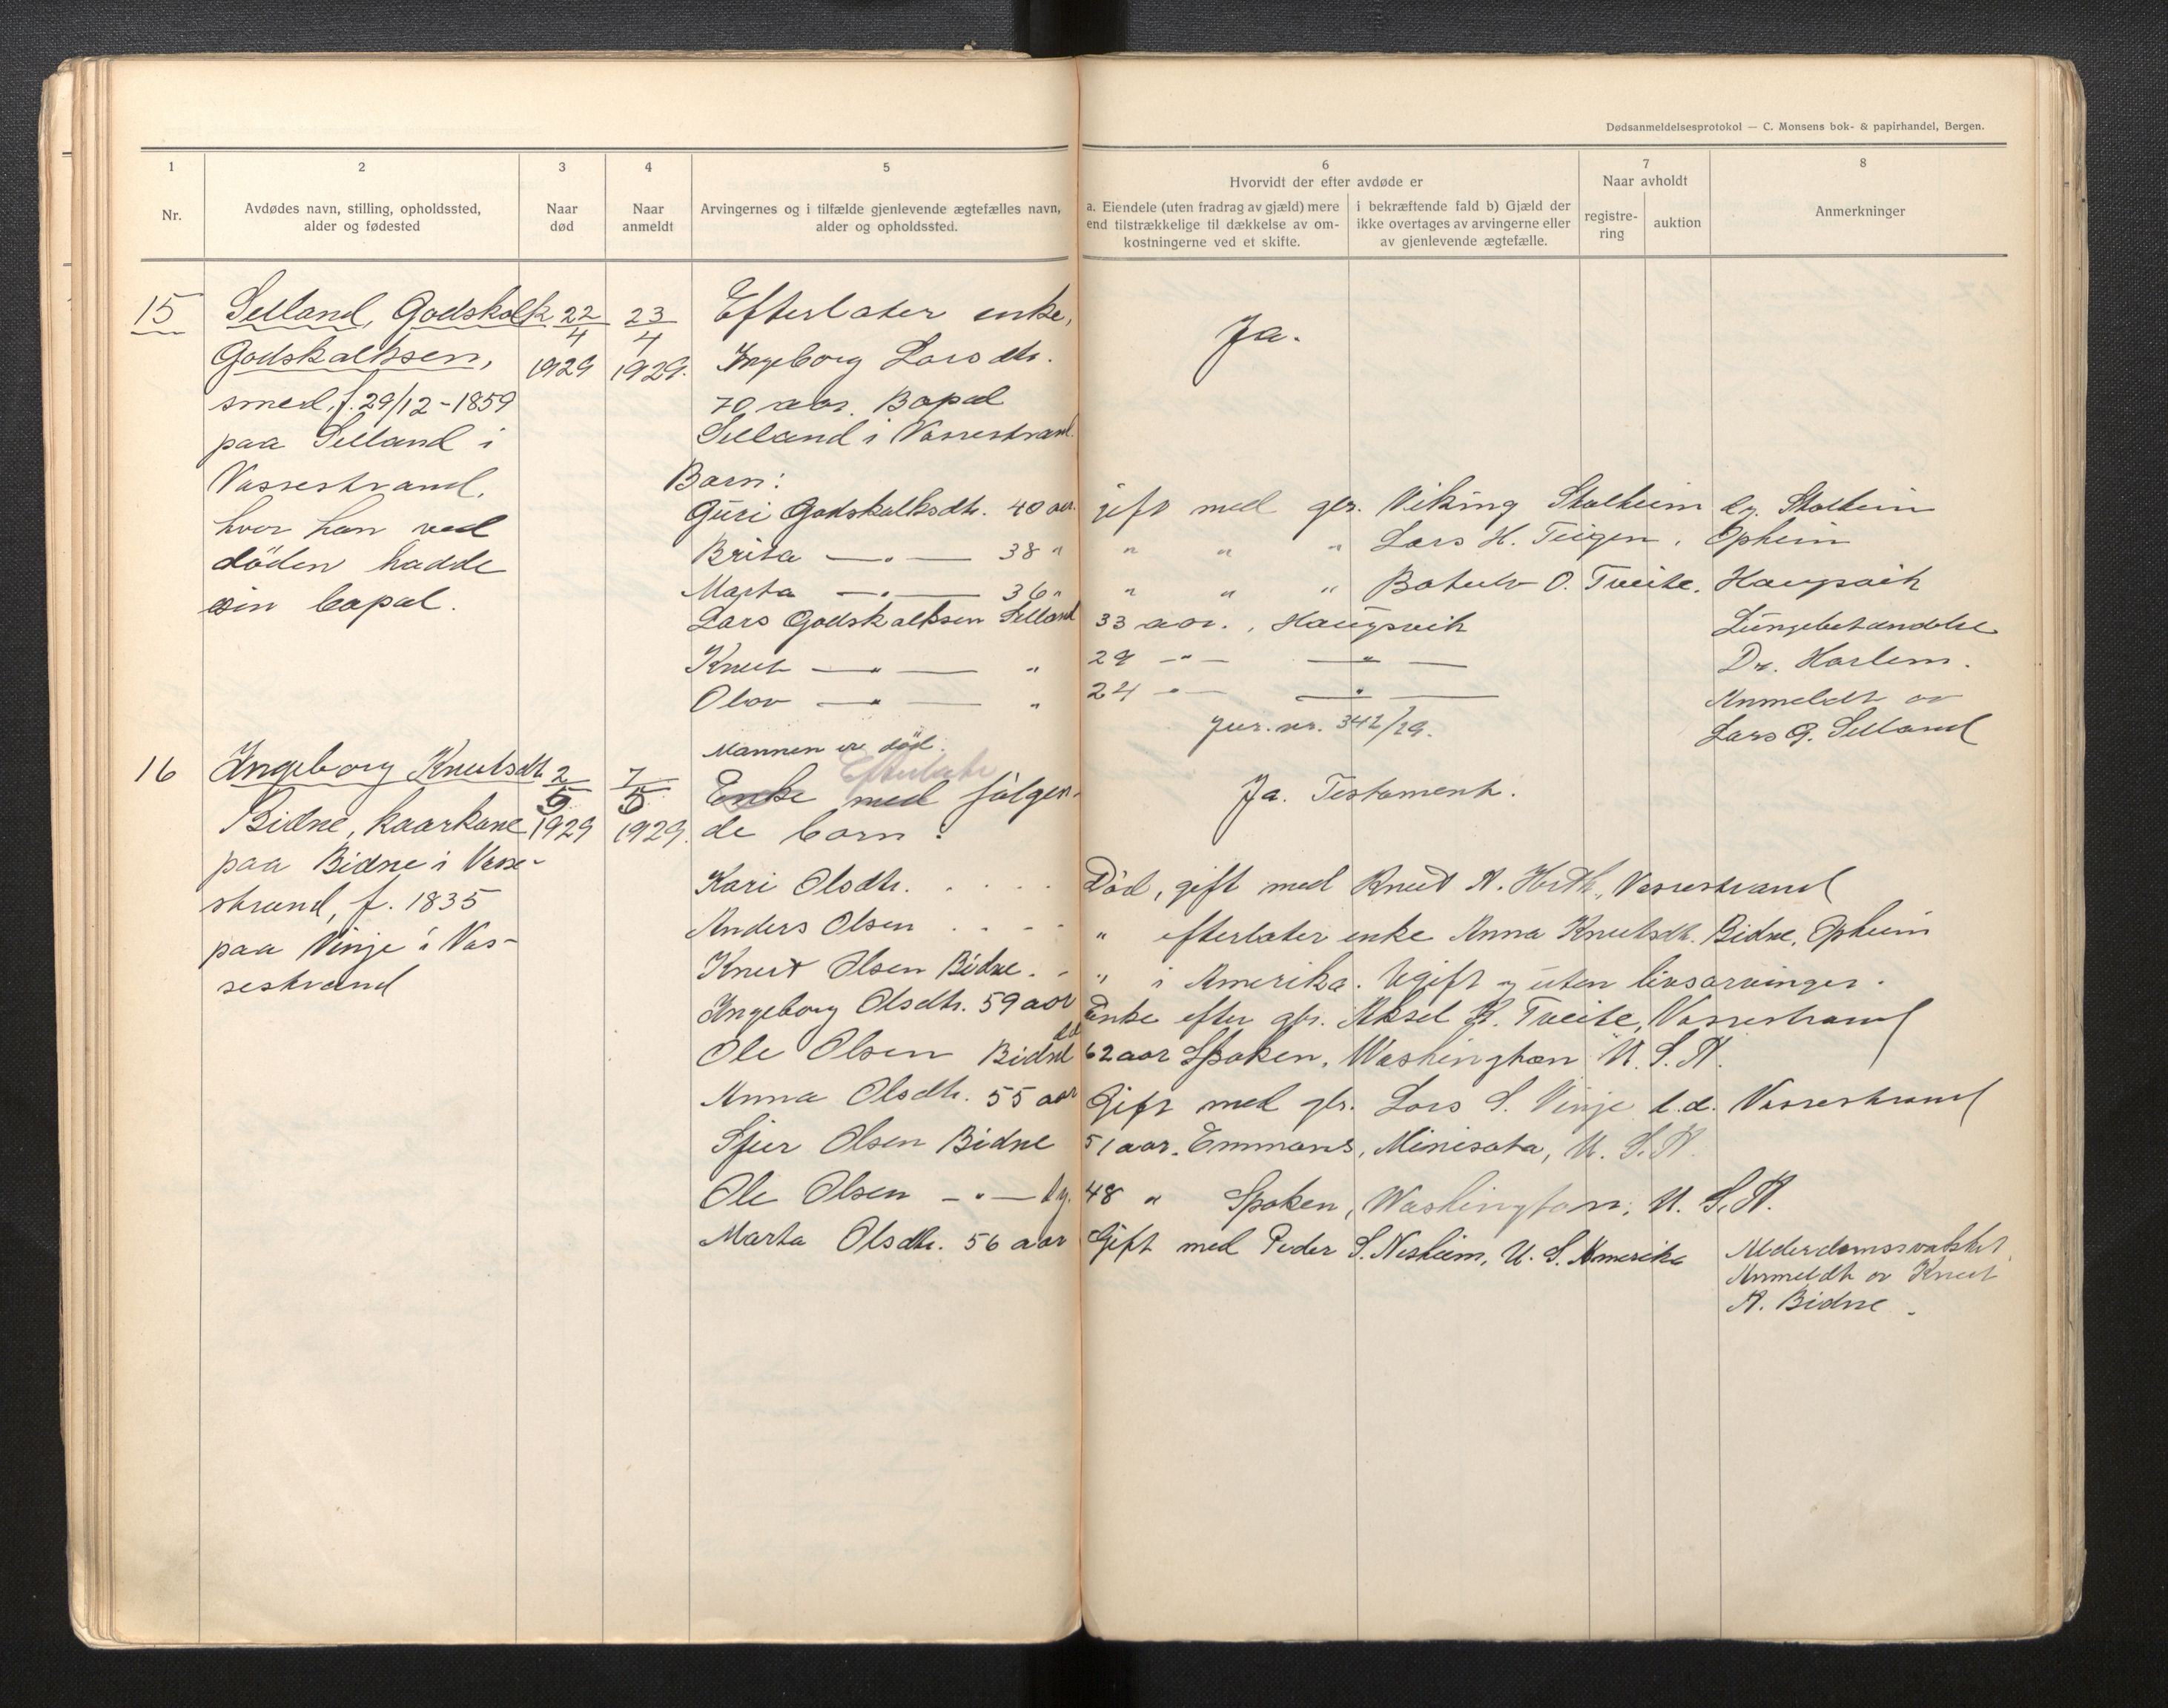 Dødsanmeldelsesprotokol — C. Monsens bok- & papirhandel, Bergen.
1
2
3
4
5
6
7
8
Nr.
Avdødes navn, stilling, opholdssted,
alder og fødested
Naar
død
Naar
anmeldt
Arvingernes og i tilfælde gjenlevende ægtefælles navn,
alder og opholdssted.
Hvorvidt der efter avdøde er
a. Eiendele (uten fradrag av gjæld) mere
end tilstrækkelige til dækkelse av om-
kostningerne ved et skifte.
i bekræftende fald b) Gjæld der
ikke overtages av arvingerne eller
av gjenlevende ægtefælle.
Naar avholdt
registre-
ring
auktion
Anmerkninger
15
Selland, Godskalk
Godskalksen,
smed, f. 29/12-1859
paa Selland i
Vossestrand,
hvor han ved
döden hadde
sin bopal.
22/4
1929
23/4
1929.
Efterlater enke,
Ingeborg Larsdtr.
70 aar. Bopæl
Selland i Vossestrand.
Barn:
Guri Godskalksdtr. 40 aar. gift med gbr. Viking Stalheim dy. Stalheim
Brita —„— 38 " " " " Lars H. Tuigen, Opheim
Marta —„— 36 " " " " Botulv O. Tveite, Haugsvik
Lars Godskalksen Selland 33 aar., Haugsvik
Knut —„— " 29 —"— —"—
Olav —„— " 24 —"— —"—
Ja.
jur. nr. 342/29.
Lungebetændelse
Dr. Harlem.
Anmeldt av
Lars G. Selland
16
Ingeborg Knutsdtr.
Bidne, kaarkone
paa Bidne i Vosse-
strand, f. 1835
paa Vinje i Vos-
sestrand
2/5
1929
7/5
1929.
Mannen er död.
Efterlate
Enke med fölgen-
de barn:
Ja. Testament.
Kari Olsdtr. . . . . . Död, gift med Knut A. Hirth, Vossestrand
Anders Olsen . . . . " efterlater enke Anna Knutsdtr. Bidne, Opheim
Knut Olsen Bidne. . " i Amerika. Ugift og uten livsarvinger.
Ingeborg Olsdtr. 59 aar Enke efter gbr. Aksel K. Tveite, Vossestrand
Ole Olsen Bidne d.e. 62 aar Spoken, Washington U. S. A.
Anna Olsdtr. 55 aar Gift med gbr. Lars S. Vinje d.e. Vossestrand
Sjur Olsen Bidne 51 aar. Emmons, Minisota, U. S. A.
Ole Olsen —„— dy. 48 " Spoken, Washington, U. S. A.
Marta Olsdtr. 56 aar Gift med Peder S. Nesheim, U. S. Amerika
Alderdomssvakhet.
Anmeldt av Knut
A. Bidne.